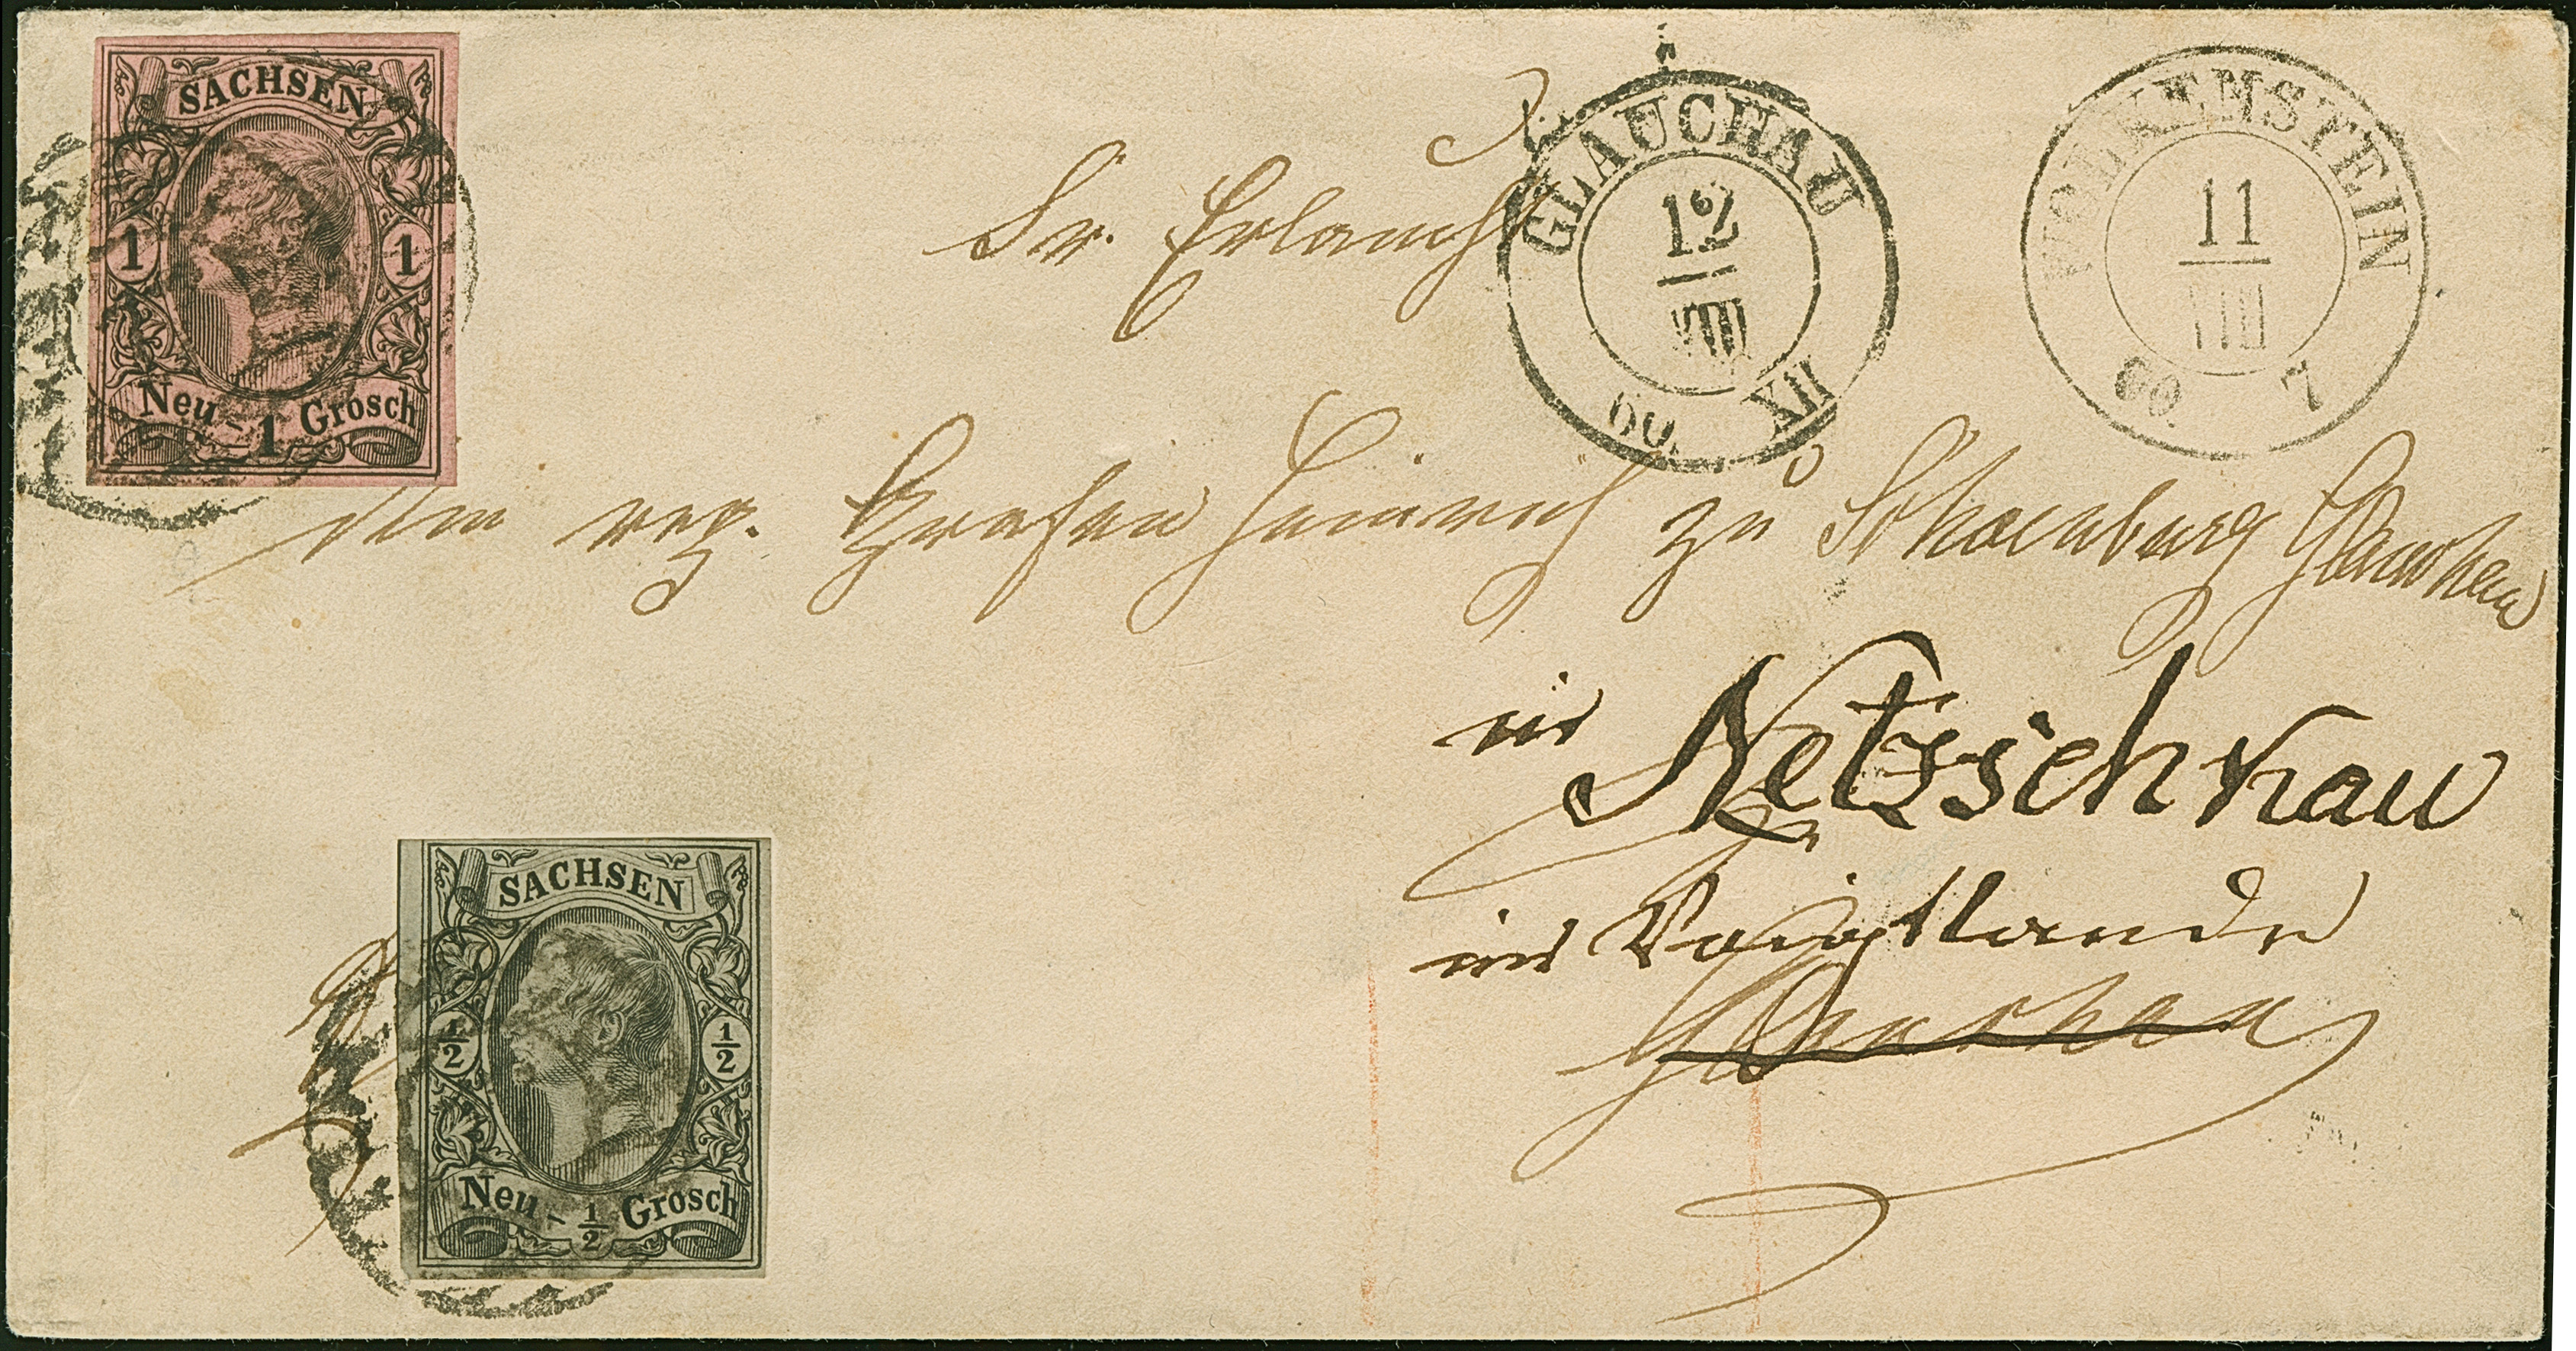 SACHSEN
1 1
Neu-1 Grosch
GLAUCHAU
12
VIII
60.
WOLKENSTEIN
11
VIII
60 7
Sr. Erlaucht
dem reg. Grafen Heinrich zu Schoenburg Glauchau
in Netzschkau
im Voigtlande
Glauchau
SACHSEN
1/2 1/2
Neu-1/2 Grosch